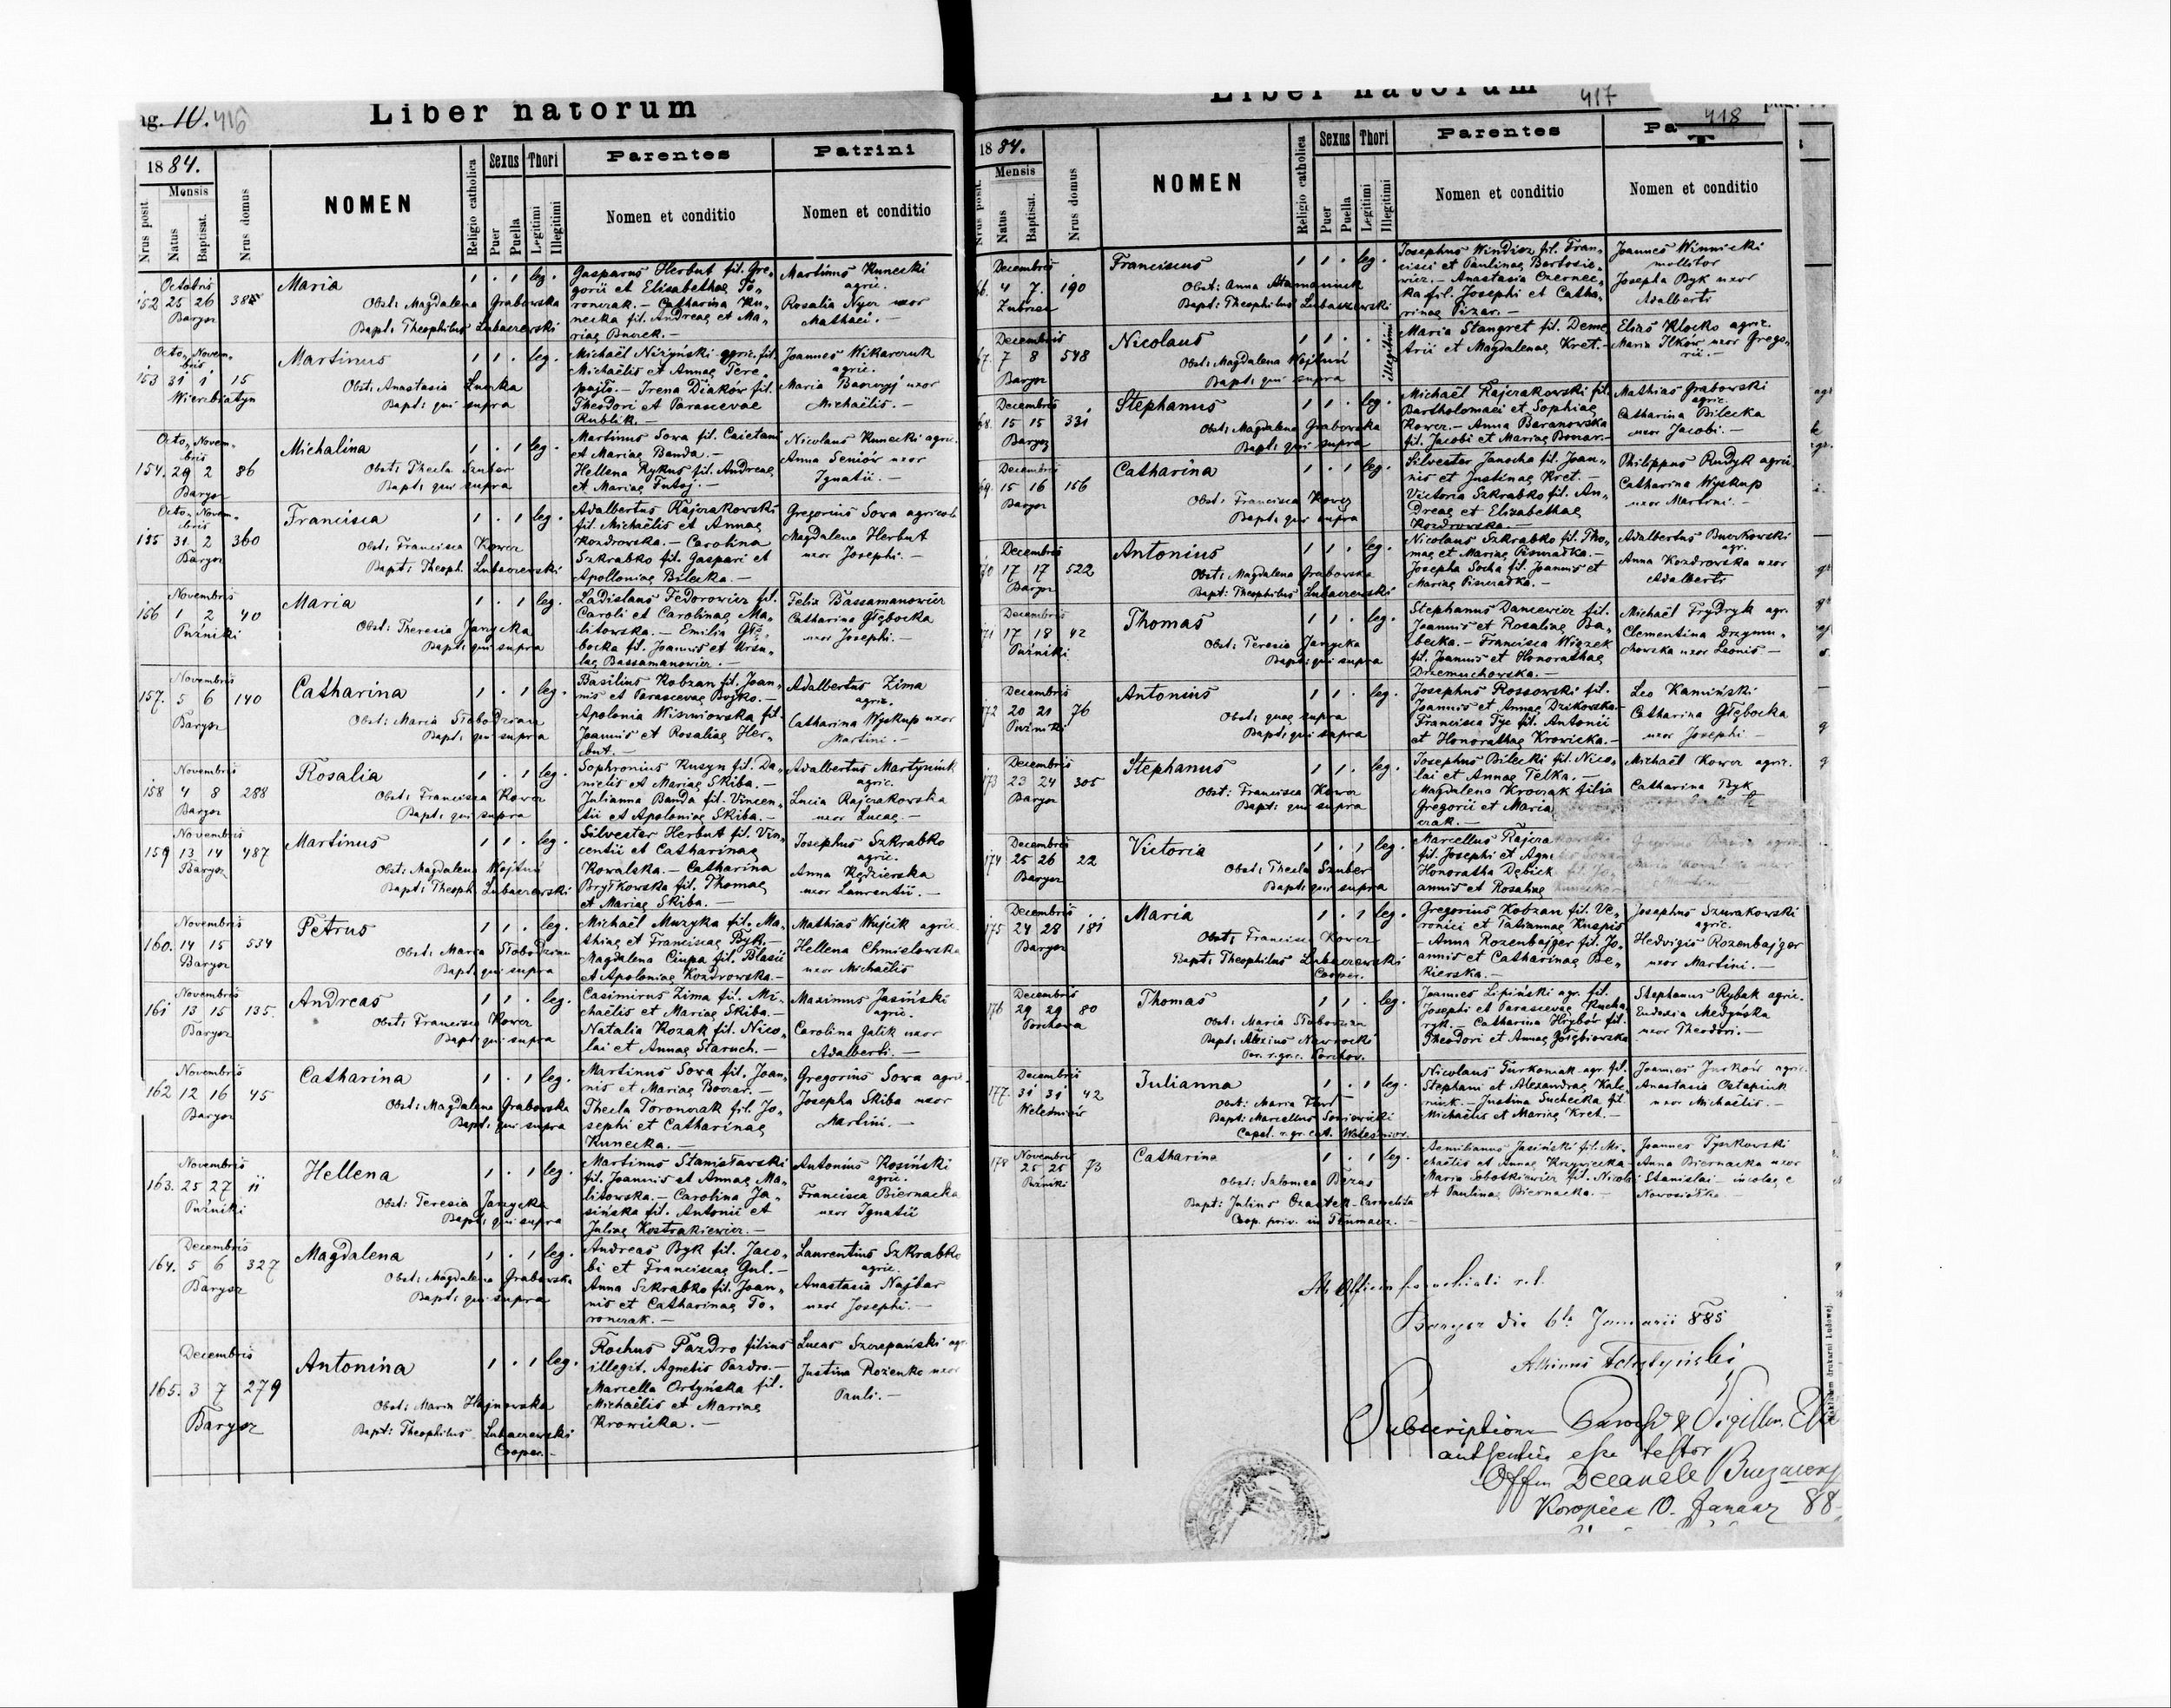 ag. 10. 416
Liber natorum
1884.
Mensis
Nrus posit.
Natus
Baptisat.
Nrus domus
NOMEN
Religio catholica
Sexus
Puer
Puella
Thori
Legitimi
Illegitimi
Parentes
Nomen et conditio
Patrini
Nomen et conditio
Octobris
152 25 26
Barysz
Maria
Obst: Magdalena Grabowska
Bapt: Theophilus Lubaczewski
1 . 1 leg.
Gasparus Herbut fil. Gre-
gorii et Elisabethae To-
ronczak. — Catharina Ku-
necka fil. Andreae et Ma-
riae
Martinus Kunecki
agric.
Rosalia Nycz uxor
Mathaei. —
Octo- Novem-
bris
153 31 1 15
Wierzbiatyn
Martinus
Obst: Anastasia Lucka
Bapt: qui supra
1 1 . leg.
Michaël Niżyński agric. fil.
Michaëlis et Annae Tere-
pajło. — Irena Diaków fil.
Theodori et Parascevae
Rublik. —
Joannes Wikarczuk
agric.
Maria uxor
Michaëlis. —
Octo- Novem-
bris
154. 29 2 86
Barysz
Michalina
Obst: Thecla Szuber
Bapt: qui supra
1 . 1 leg.
Martinus Sowa fil. Caietani
et Mariae Banda. —
Hellena Rykus fil. Andreae
et Mariae Futoj. —
Nicolaus Kunecki agric.
Anna Seniów uxor
Ignatii. —
Octo- Novem-
bris
155 31 2 360
Barysz
Francisca
Obst: Francisca Kowcz
Bapt: Theoph. Lubaczewski
1 . 1 leg.
Adalbertus Rajczakowski
fil. Michaëlis et Annae
Kozdrowska. — Carolina
Szkrabko fil. Gaspari et
Apolloniae Bilecka. —
Gregorius Sowa agricol.
Magdalena Herbut
uxor Josephi. —
Novembris
156 1 2 40
Puźniki
Maria
Obst: Theresia Janycka
Bapt: qui supra
1 . 1 leg.
Ladislaus Fedorowicz fil.
Caroli et Carolinae Ma-
litowska. — Emilia Głę-
bocka fil. Joannis et Ursu-
lae Bassamanowicz. —
Felix Bassamanowicz
Catharina Głębocka
uxor Josephi. —
Novembris
157. 5 6 140
Barysz
Catharina
Obst: Maria Słobodzian
Bapt: qui supra
1 . 1 leg.
Basilius Kobzan fil. Joan-
nis et Parascevae Bojko. —
Apolonia Wiszniowska fil.
Joannis et Rosaliae Her-
but. —
Adalbertus Zima
agric.
Catharina Wyskup uxor
Martini. —
Novembris
158 4 8 288
Barysz
Rosalia
Obst: Francisca Kowcz
Bapt: qui supra
1 . 1 leg.
Sophronius Rusyn fil. Da-
nielis et Mariae Skiba. —
Julianna Banda fil. Vincen-
tii et Apoloniae Skiba. —
Adalbertus Martyniuk
agric.
Lucia Rajczakowska
uxor Lucae. —
Novembris
159 13 14 487
Barysz
Martinus
Obst: Magdalena Wojtuń
Bapt: Theoph. Lubaczewski
1 1 . leg.
Silvester Herbut fil. Vin-
centii et Catharinae
Kowalska. — Catharina
Bryłkowska fil. Thomae
et Mariae Skiba. —
Josephus Szkrabko
agric.
Anna Kędzierska
uxor Laurentii. —
Novembris
160. 14 15 534
Barysz
Petrus
Obst: Maria Słobodzian
Bapt: qui supra
1 1 . leg.
Michaël Muzyka fil. Ma-
thiae et Franciscae Byk. —
Magdalena Ciupa fil. Blasii
et Apoloniae Kozdrowska. —
Mathias Wujcik agric.
Hellena Chmielowska
uxor Michaëlis
Novembris
161 13 15 135.
Barysz
Andreas
Obst: Francisca Kowcz
Bapt: qui supra
1 1 . leg.
Casimirus Zima fil. Mi-
chaëlis et Mariae Skiba. —
Natalia Kozak fil. Nico-
lai et Annae Staruch. —
Maximus Jasiński
agric.
Carolina Galik uxor
Adalberti. —
Novembris
162 12 16 45
Barysz
Catharina
Obst: Magdalena Grabowska
Bapt: qui supra
1 . 1 leg.
Martinus Sowa fil. Joan-
nis et Mariae Boczar. —
Thecla Toronczak fil. Jo-
sephi et Catharinae
Kunecka. —
Gregorius Sowa agric.
Josepha Skiba uxor
Martini. —
Novembris
163. 25 27 11
Puźniki
Hellena
Obst: Teresia Janycka
Bapt: qui supra
1 . 1 leg.
Martinus Stanisławski
fil. Joannis et Annae Ma-
litowska. — Carolina Ja-
sińska fil. Antonii et
Juliae Kostrakiewicz. —
Antonius Rosiński
agric.
Francisca Biernacka
uxor Ignatii
Decembris
164. 5 6 327
Barysz
Magdalena
Obst: Magdalena Grabowska
Bapt: qui supra
1 . 1 leg.
Andreas Byk fil. Jaco-
bi et Franciscae Gul. —
Anna Szkrabko fil. Joan-
nis et Catharinae To-
ronczak. —
Laurentius Szkrabko
agric.
Anastasia Najbar
uxor Josephi. —
Decembris
165. 3 7 279
Barysz
Antonina
Obst: Maria Hajnowska
Bapt: Theophilus Lubaczewski
Cooper. —
1 . 1 leg.
Rochus Pazdro filius
illegit. Agnetis Pazdro. —
Marcella Ortyńska fil.
Michaëlis et Mariae
Krowicka. —
Lucas Szczepański agr.
Justina Rożenko uxor
Pauli. —
Liber natorum
417
418
1884.
Mensis
Nrus posit.
Natus
Baptisat.
Nrus domus
NOMEN
Religio catholica
Sexus
Puer
Puella
Thori
Legitimi
Illegitimi
Parentes
Nomen et conditio
Pa
Nomen et conditio
Decembris
66. 4 7. 190
Zubrzec
Franciscus
Obst: Anna Atamaniuk
Bapt: Theophilus Lubaczewski
1 1 . leg.
Josephus Windisz fil. Fran-
cisci et Paulinae Bartosie-
wicz. — Anastasia Czernec-
ka fil. Josephi et Catha-
rinae Pizar. —
Joannes Winnicki
molitor
Josepha Byk uxor
Adalberti
Decembris
67. 7 8 548
Barysz
Nicolaus
Obst: Magdalena Wojtuń
Bapt: qui supra
1 1 .
illegitimi
Maria Stangret fil. Deme-
trii et Magdalenae Kret. —
Elias Klocko agric.
Maria Ilków uxor Grego-
rii. —
Decembris
68. 15 15 331
Barysz
Stephanus
Obst: Magdalena Grabowska
Bapt: qui supra
1 1 . leg.
Michaël Rajczakowski fil.
Bartholomaei et Sophiae
Kowcz. — Anna Baranowska
fil. Jacobi et Mariae Boczar. —
Mathias Grabowski
agric.
Catharina Bilecka
uxor Jacobi. —
Decembris
69. 15 16 156
Barysz
Catharina
Obst: Francisca Kowcz
Bapt: qui supra
1 . 1 leg.
Silvester Janocha fil. Joan-
nis et Justinae Kret. —
Victoria Szkrabko fil. An-
dreae et Elizabethae
Kozdrowska. —
Philippus Rudyk agric.
Catharina Wyskup
uxor Martini. —
Decembris
70 17 17 522
Barysz
Antonius
Obst: Magdalena Grabowska
Bapt: Theophilus Lubaczewski
1 1 . leg.
Nicolaus Szkrabko fil. Tho-
mae et Mariae Pisuradka. —
Josepha Socha fil. Joannis et
Mariae Pisuradka. —
Adalbertus
agr.
Anna Kozdrowska uxor
Adalberti
Decembris
71 17 18 42
Puźniki
Thomas
Obst: Teresia Janycka
Bapt: qui supra
1 1 . leg.
Stephanus Dancewicz fil.
Joannis et Rosaliae Ba-
becka. — Francisca Wiązek
fil. Joannis et Honorathae
Drzemuchowska. —
Michaël Frydryk agr.
Clementina Drzymu-
chowska uxor Leonis —
Decembris
172 20 21 76
Puźniki
Antonius
Obst: quae supra
Bapt: qui supra
1 1 . leg.
Josephus Rossowski fil.
Joannis et Annae Dzikowska. —
Francisca Tyc fil. Antonii
et Honorathae Krowicka. —
Leo Kamiński
Catharina Głębocka
uxor Josephi —
Decembris
173 23 24 305
Barysz
Stephanus
Obst: Francisca Kowcz
Bapt: qui supra
1 1 . leg.
Josephus Bilecki fil. Nico-
lai et Annae Telka. —
Magdalena Kroczak filia
Gregorii et Maria
czak. —
Michaël Kowcz agric.
Catharina Byk
Decembris
174 25 26 22
Barysz
Victoria
Obst: Thecla Szuber
Bapt: qui supra
1 . 1 leg.
Marcellus Rajcza
fil. Josephi et Agne
Honoratha Dębick fil. Jo-
annis et Rosaliae
Decembris
175 24 28 181
Barysz
Maria
Obst: Francisca Kowcz
Bapt: Theophilus Lubaczewski
Cooper.
1 . 1 leg.
Gregorius Kobzan fil. Ve-
ronici et Tatiannae Knapis
— Anna Rozenbajger fil. Jo-
annis et Catharinae Be-
kierska. —
Josephus Szurakowski
agric.
Hedvigis Rozenbajger
uxor Martini. —
Decembris
176 29 29 80
Porchowa
Thomas
Obst: Maria Słobodzian
Bapt: Alexius Nawrocki
Par. r. gr. c. Porchov.
1 1 . leg.
Joannes Lipiński agr. fil.
Josephi et Parascevae Kucha-
ryk. — Catharina Hrybów fil.
Theodori et Annae Gołębiowska
Stephanus Rybak agric.
Eudoxia Medyńska
uxor Theodori. —
Decembris
177. 31 31 42
Weleśniów
Julianna
Obst: Maria
Bapt: Marcellus Soniewicki
Capel. r. gr. cat. Weleśniov.
1 . 1 leg.
Nicolaus Furkoniak agr. fil.
Stephani et Alexandrae Kale-
niuk. — Justina Suchecka fil.
Michaëlis et Mariae Kret. —
Joannes Jurków agric.
Anastasia Ostapiuk
uxor Michaëlis. —
178 Novembris
25 25 73
Puźniki
Catharina
Obst: Salomea Bezus
Bapt: Julius Czastek — Carmelita
Coop. priv. in Tłumacz.
1 . 1 leg.
Aemilianus Jasiński fil. Mi-
chaëlis et Annae Krzywicka —
Maria Sobotkiewicz fil. Nicolai
et Paulinae Biernacka. —
Joannes Tyszkowski
Anna Biernacka uxor
Stanislai — incolae e
Nowosiółka —
Ab Officio parochiali r. l.
Barysz die 6ta Januarii 885
Subscriptionem Parochi & Sigillum
authenticum esse testor
Offm Decanale
Koropiec 10. Januar 88
Nakładem drukarni Ludowej.